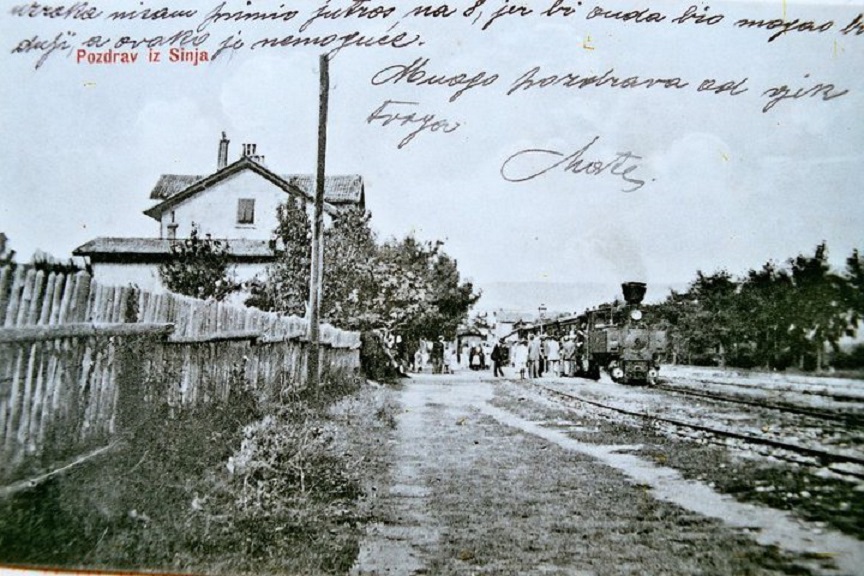 uzroka nisam primio jutros, na 8, jer bi onda bio mogao
duji, a ovako je nemoguće.
Pozdrav iz Sinja
Mnogo pozdrava od
tvoga
Mate